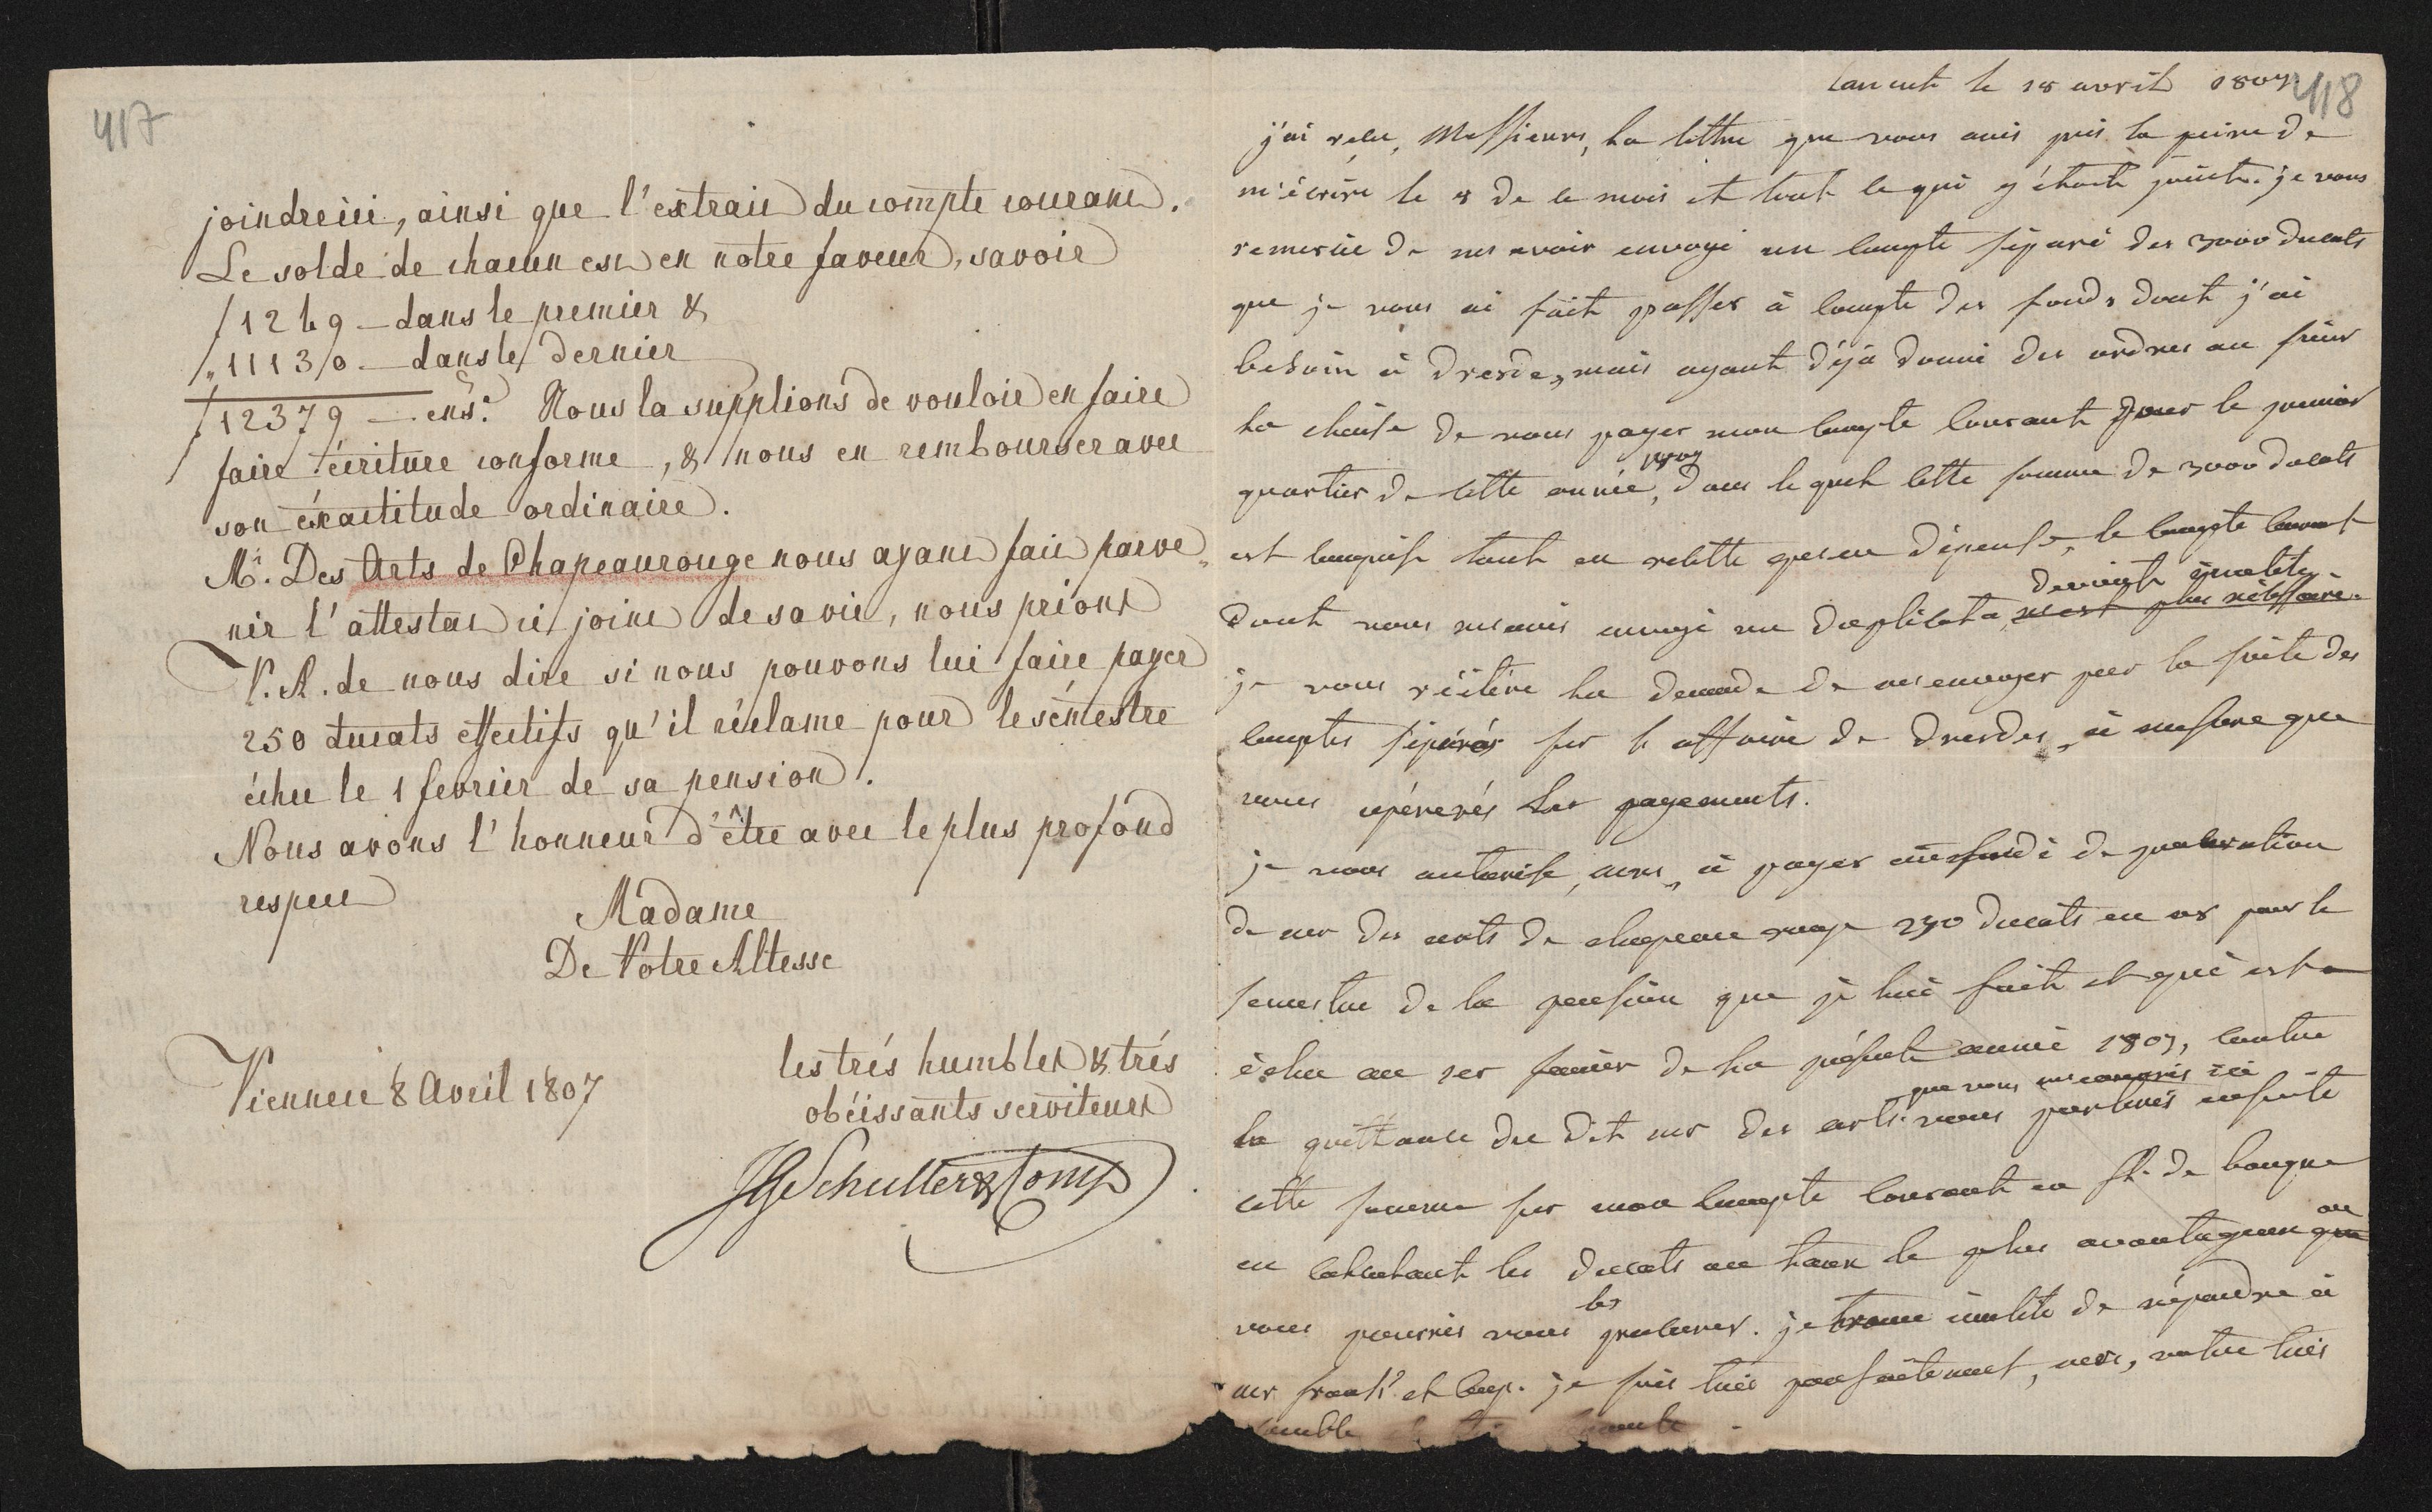 417
joindre ici, ainsi que l'extrait du compte courant.
Le solde de chacun est en notre faveur, savoir
f 1249 — dans le premier &
f " 11130 — dans le dernier
f 12379 — ens. Nous la supplions de vouloir en faire
faire écriture conforme, & nous en rembourser avec
son éxactitude ordinaire.
Mr. Des Arts de Chapeaurouge nous ayant fait parve„
nir l'attestat ci joint de sa vie, nous prions
V. A. de nous dire si nous pouvons lui faire payer
250 ducats effectifs qu'il réclame pour le sémestre
échu le 1 fevrier de sa pension.
Nous avons l'honneur d'être avec le plus profond
respect
Madame
De Votre Altesse
les trés humbles & trés
obéissants serviteurs
Vienne ce 8 Avril 1807
JG Schuller & Comp
418
Lancut le 18 avril 1807
j'ai reçu, Messieurs, la lettre que vous avés pris la peine de
m'écrire le 8 de ce mois et tout ce qui y étoit joint. je vous
remercie de m'avoir envoyé un compte séparé des 3000 ducats
que je vous ai fait passer à compte des fonds dont j'ai
besoin à dresde, mais ayant déja donné des ordres au sieur
la chaise de vous payer mon compte courant pour le premier
quartier de cette année 1807, dans le quel cette somme de 3000 ducats
est comprise tant en recette qu'en dépense, le compte courant
dont vous m'avés envoyé un duplicata, n'est plus nécessaire. devient inutile.
je vous réitère la demande de m'envoyer par la suite des
comptes séparés sur l'affaire de dresde, à mesure que
vous opérerés les payements.
je vous autorise, mrs, à payer au fondé de procuration
de mr des arts de chapeau rouge 250 ducats en or pour le
semestre de la pension que je lui fait et qui est
échu au 1er fevrier de la présente année 1807, contre
la quittance du dit mr des arts. que vous m'enverrés ici vous porterés ensuite
cette somme sur mon compte courant en fl. de banque
en calculant les ducats au taux le plus avantageux que ou
vous pourrés vous les procurer. je trouve inutile de répondre à
mr et Comp. je suis très parfaitement, mrs, votre très
humble